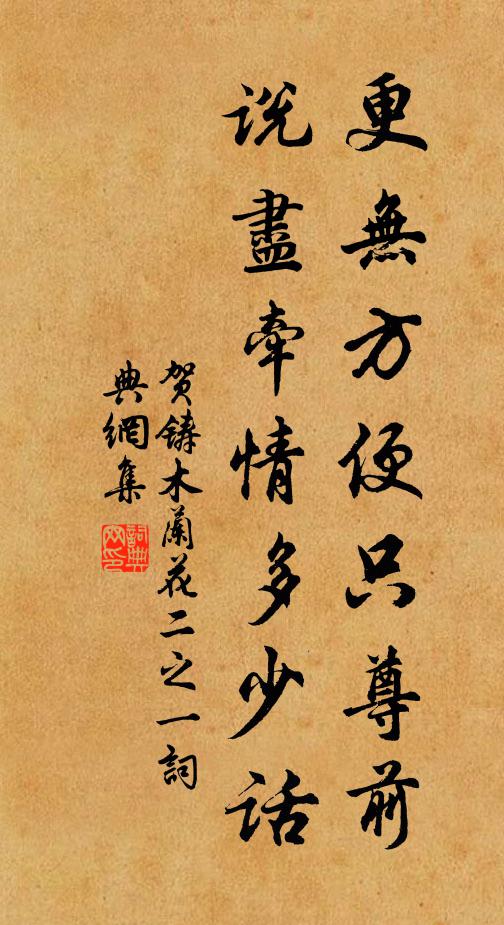 更無方便只尊前
說盡牽情多少話
贺鑄木蘭花二之一詞
典網集
詞典网印